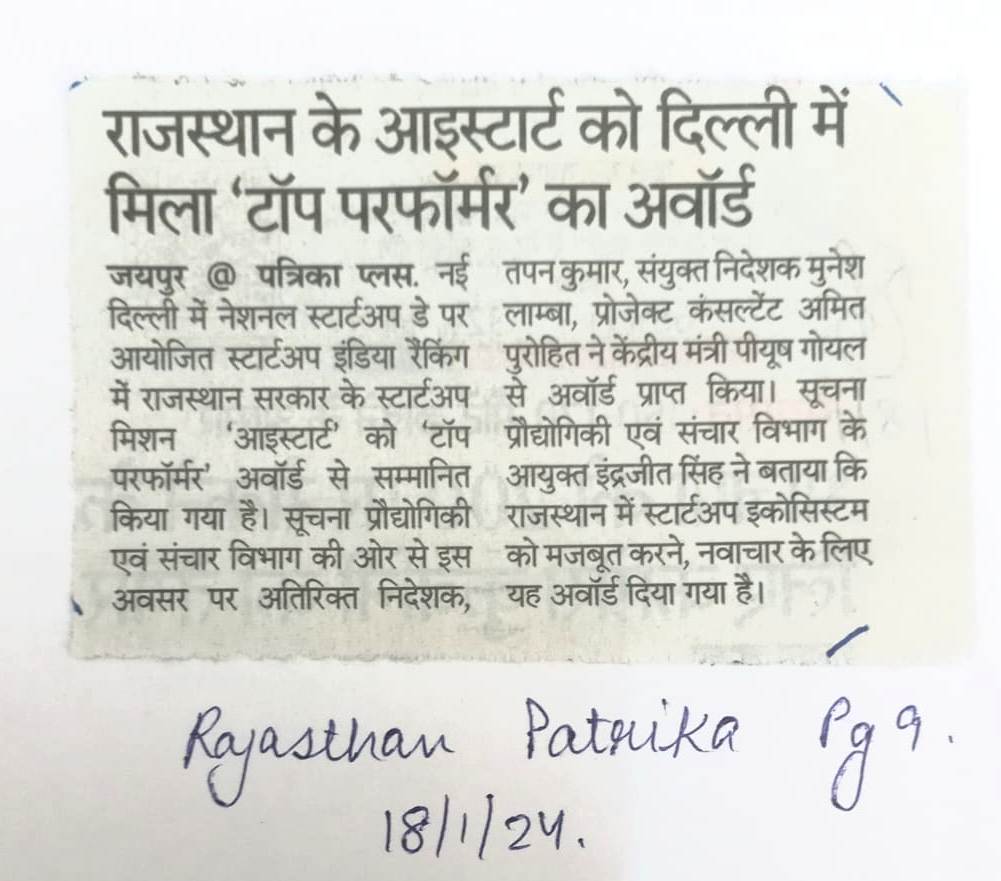 राजस्थान के आइस्टार्ट को दिल्ली में
मिला ‘टॉप परफॉर्मर’ का अवॉर्ड
जयपुर @ पत्रिका प्लस. नई
दिल्ली में नेशनल स्टार्टअप डे पर
आयोजित स्टार्टअप इंडिया रैंकिंग
में राजस्थान सरकार के स्टार्टअप
मिशन ‘आइस्टार्ट’ को ‘टॉप
परफॉर्मर’ अवॉर्ड से सम्मानित
किया गया है। सूचना प्रौद्योगिकी
एवं संचार विभाग की ओर से इस
अवसर पर अतिरिक्त निदेशक,
तपन कुमार, संयुक्त निदेशक मुनेश
लाम्बा, प्रोजेक्ट कंसल्टेंट अमित
पुरोहित ने केंद्रीय मंत्री पीयूष गोयल
से अवॉर्ड प्राप्त किया। सूचना
प्रौद्योगिकी एवं संचार विभाग के
आयुक्त इंद्रजीत सिंह ने बताया कि
राजस्थान में स्टार्टअप इकोसिस्टम
को मजबूत करने, नवाचार के लिए
यह अवॉर्ड दिया गया है।
Rajasthan Patrika Pg 9.
18/1/24.